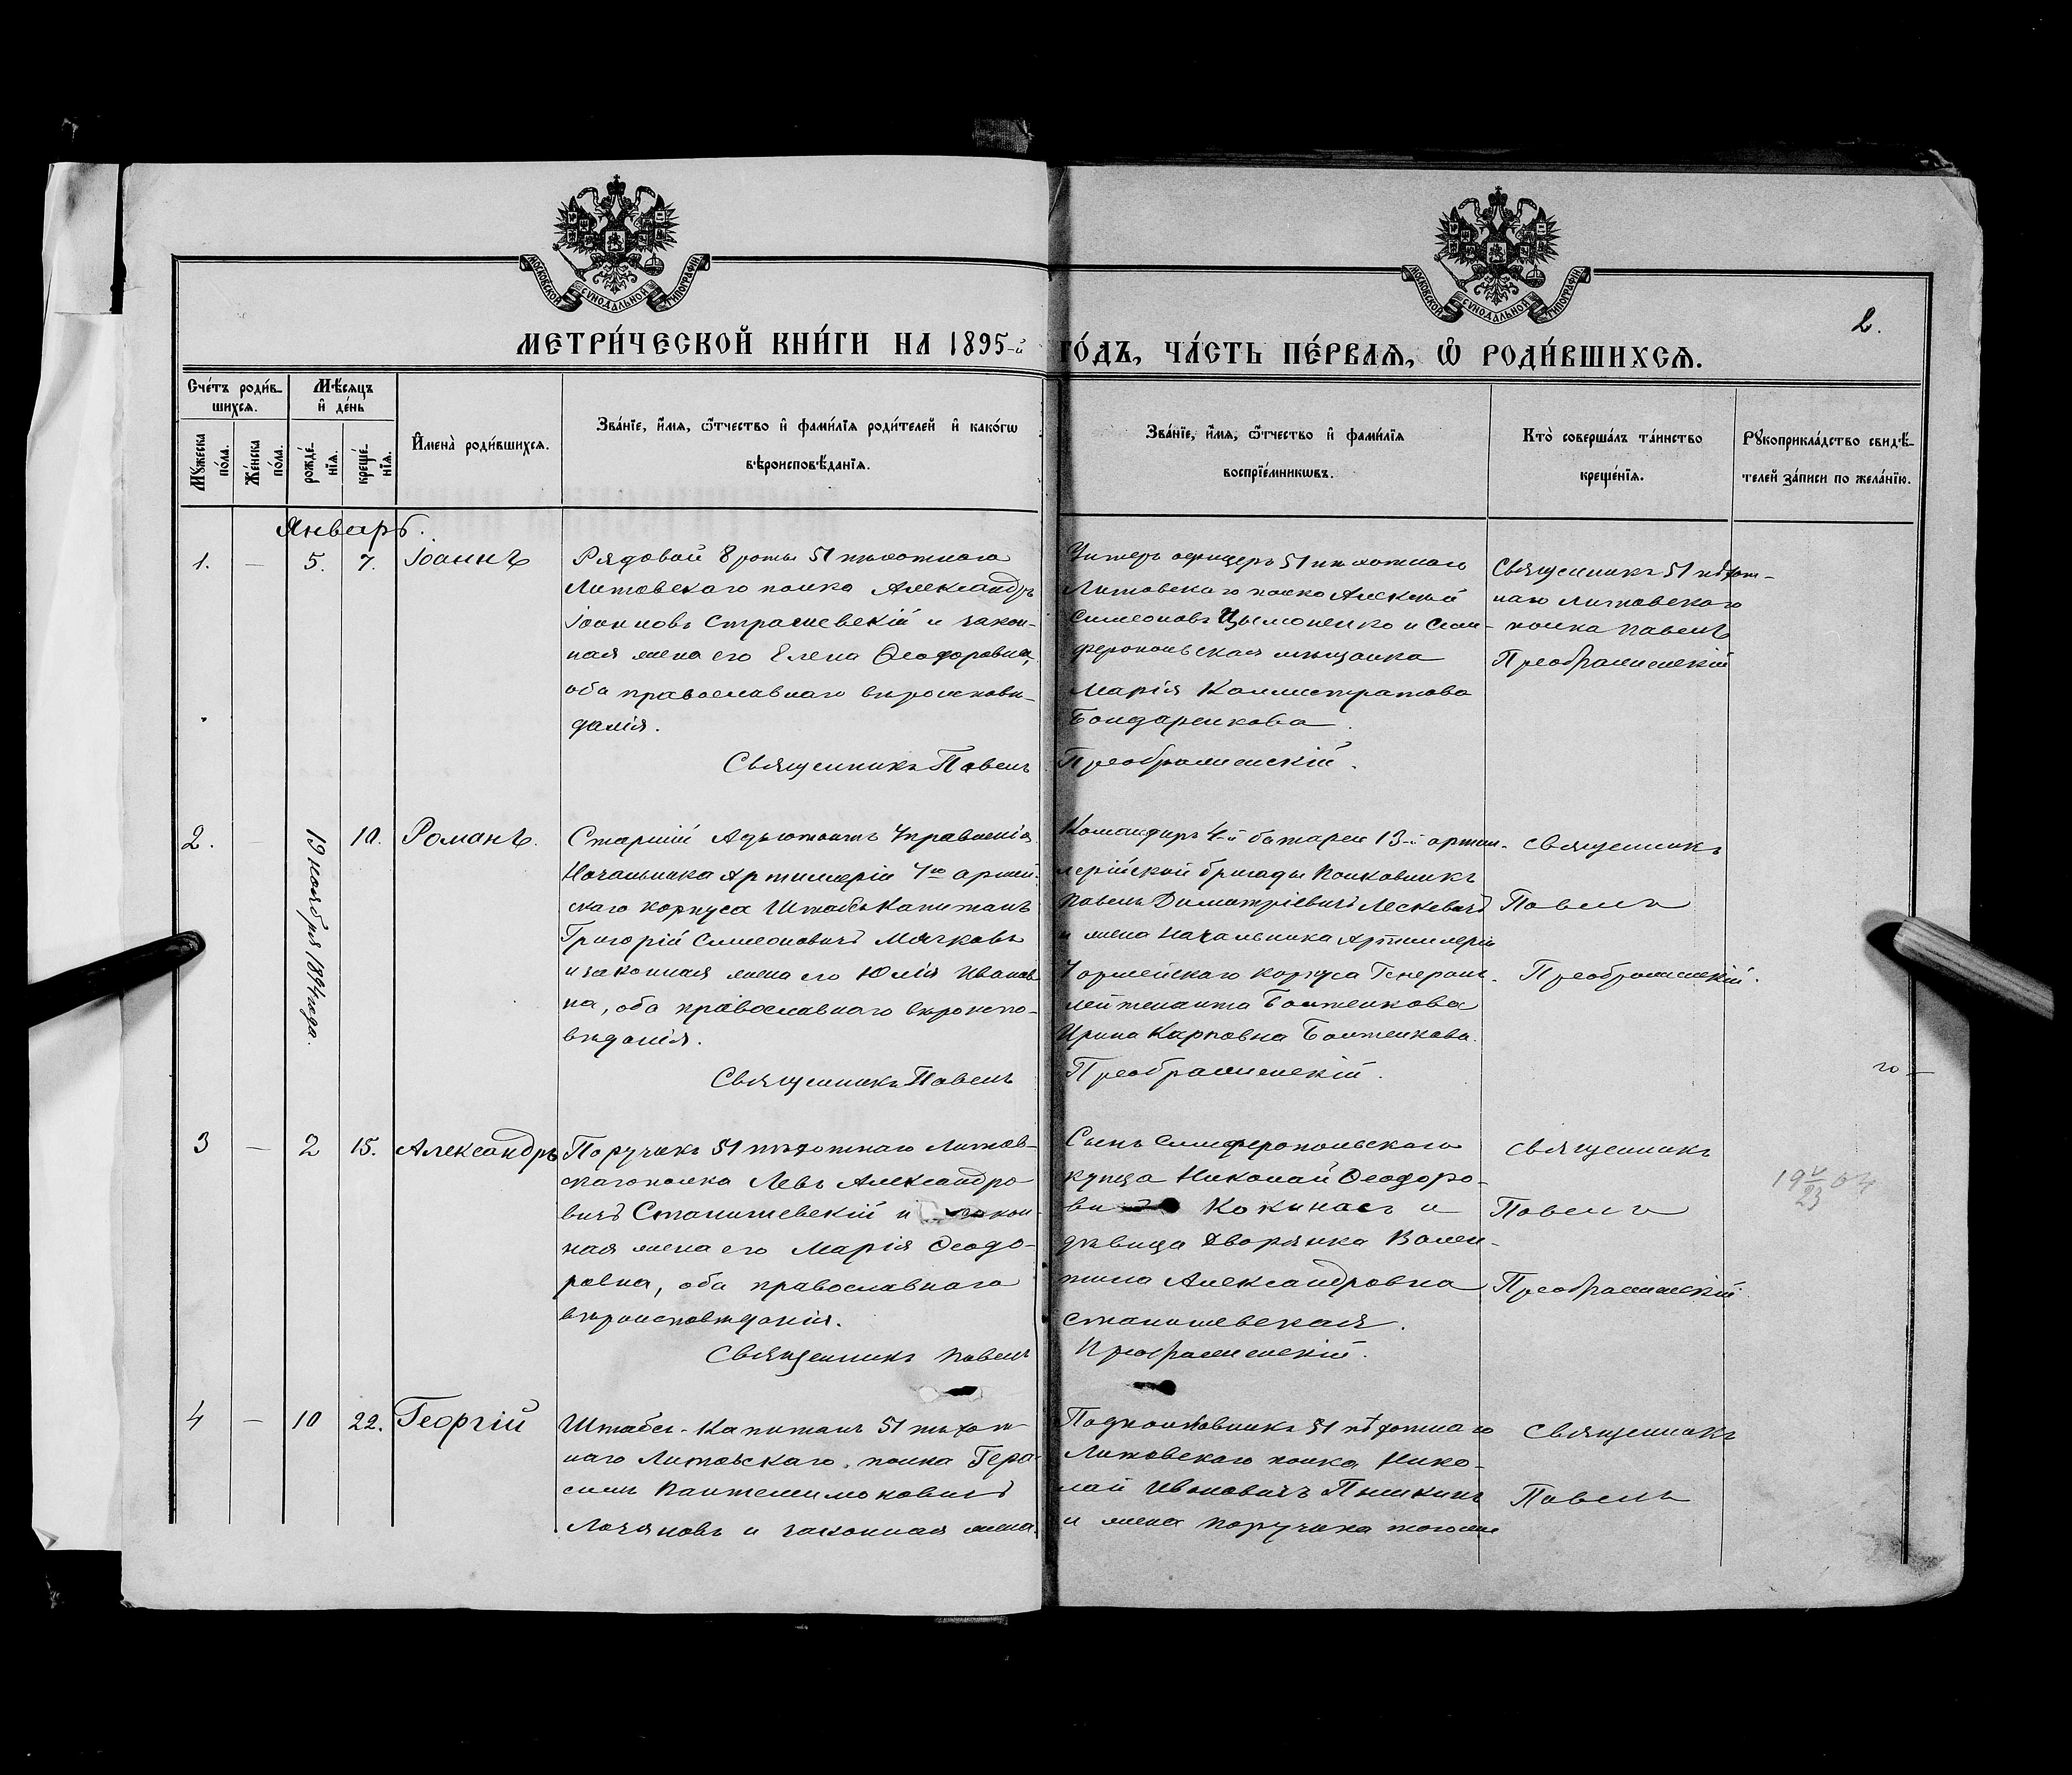 МОСКОВСКОЙ СУНОДАЛЬНОЙ ТИПОГРАФІИ
МОСКОВСКОЙ СУНОДАЛЬНОЙ ТИПОГРАФІИ
2.
МЕТРИ́ЧЕСКОЙ КНИ́ГИ НА 1895-й ГО́ДЪ, ЧА́СТЬ ПЕ́РВАѦ, Ѽ РОДИ́ВШИХСѦ.
Сче́тъ роди́в-
шихсѧ.
Мꙋжеска по́ла.
Же́нска по́ла.
Мѣ́сѧцъ
и҆ де́нь
рожде́-
нїѧ.
креще́-
нїѧ.
И҆мена̀ роди́вшихсѧ.
Зва́нїе, и҆́мѧ, ѻ҆́тчество и҆ фами́лїѧ роди́телей и҆ како́гѡ
вѣроисповѣ́данїѧ.
Зва́нїе, и҆́мѧ, ѻ҆́тчество и҆ фами́лїѧ
воспрїе́мникѡвъ.
Кто̀ соверша́лъ та́инство
креще́нїѧ.
Рꙋкоприкла́дство свидѣ́-
телей за́писи по жела́нїю.
Январь.
1. — 5. 7. Іоаннъ
Рядовой 8 роты 51 пѣхотнаго
Литовскаго полка Александръ
Іоанновъ Страшевскій и закон-
ная жена его Елена Ѳеодоровна,
оба православнаго вѣроисповѣ-
данія.
Священникъ Павелъ Преображенскій.
Унтеръ офицеръ 51 пѣхотнаго
Литовскаго полка Алексѣй
Симеоновъ Цымоненко и Сим-
феропольская мѣщанка
Марія Каллистратова
Бондаренкова.
Священникъ 51 пѣхот-
наго Литовскаго
полка Павелъ
Преображенскій
2. — 19 ноября 1894 года. 10. Романъ.
Старшій Адъютантъ Управленія
Начальника Артиллеріи 7го армей-
скаго корпуса Штабсъ-Капитанъ
Григорій Симеоновичъ Мячковъ
и законная жена его Юлія Иванов-
на, оба православнаго вѣроиспо-
вѣданія.
Священникъ Павелъ Преображенскій.
Командиръ 4-й батареи 13-й артил-
лерійской бригады Полковникъ
Павелъ Димитріевичъ Лескевичъ
и жена Начальника Артиллеріи
7 армейскаго корпуса Генералъ-
лейтенанта Болтенкова
Ирина Карповна Болтенкова.
Священникъ
Павелъ
Преображенскій.
3 — 2 15. Александръ
Поручикъ 51 пѣхотнаго Литов-
скаго полка Левъ Александро
вичъ Станишевскій и закон-
ная жена его Марія Ѳеодо-
ровна, оба православнаго
вѣроисповѣданія.
Священникъ Павелъ Преображенскій.
Сынъ Симферопольскаго
купца Николай Ѳеодоро-
ви Кокинасъ и
дѣвица Дворянка Вален-
тина Александровна
Станишевская.
Священникъ
Павелъ
Преображенскій
4 — 10 22. Георгій
Штабсъ-Капитанъ 51 пѣхот-
наго Литовскаго полка Гера-
симъ Пантелеимоновичъ
и законная жена
Подполковникъ 51 пѣхотнаго
Литовскаго полка Нико-
лай Ивановичъ Пышкинъ
и жена поручика того же
Священникъ
Павелъ